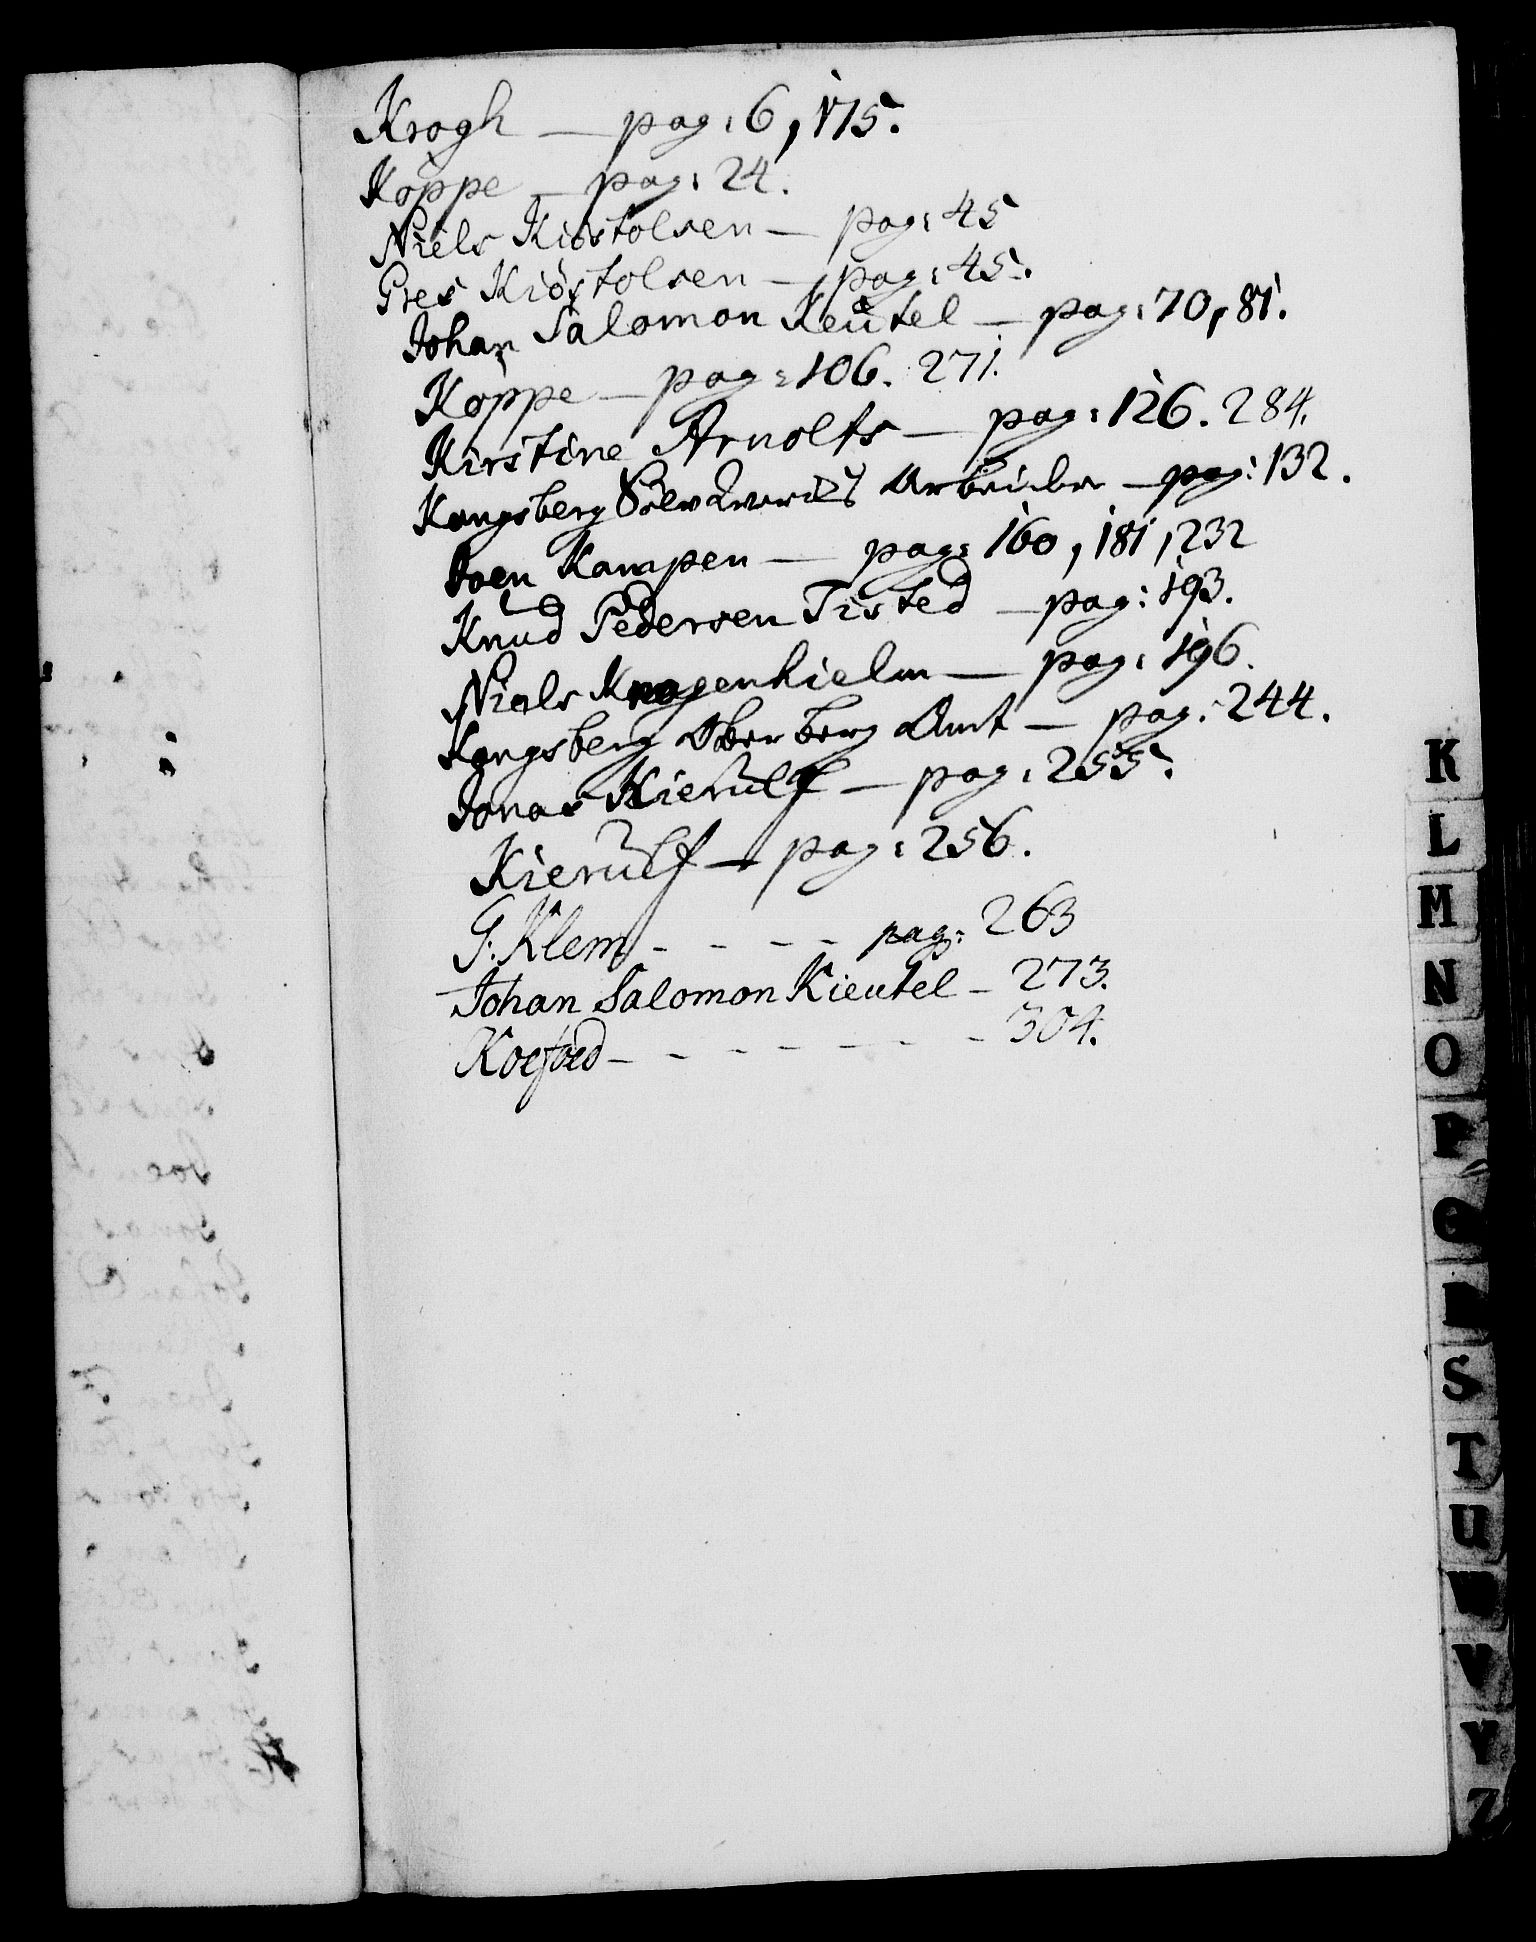 Krogh — pag: 6, 175.
Köppe — pag: 24.
Niels Kiöstolsen — pag: 45
Gres Kiöstolsen — pag: 45.
Johan Salomon Keütel — pag: 70, 81.
Köppe — pag: 106. 271.
Kirstine Arnolts — pag: 126. 284.
Kongsberg Sölv Arbeider — pag: 132.
Joen Kampen — pag: 160, 181, 232
Knud Pedersen Tisted — pag: 193.
Niels Knagenhielm — pag: 196.
Kongsberg Ober berg Amt — pag: 244.
Jonas Kierülf — pag: 255.
Kierülf — pag: 256.
G: Klem - - - - pag: 263
Johan Salomon Kieutel - 273.
Koefoed - - - - - - - 304.
K
L
M
N
O
P
Q
R
S
T
U
W
V
Y
Z